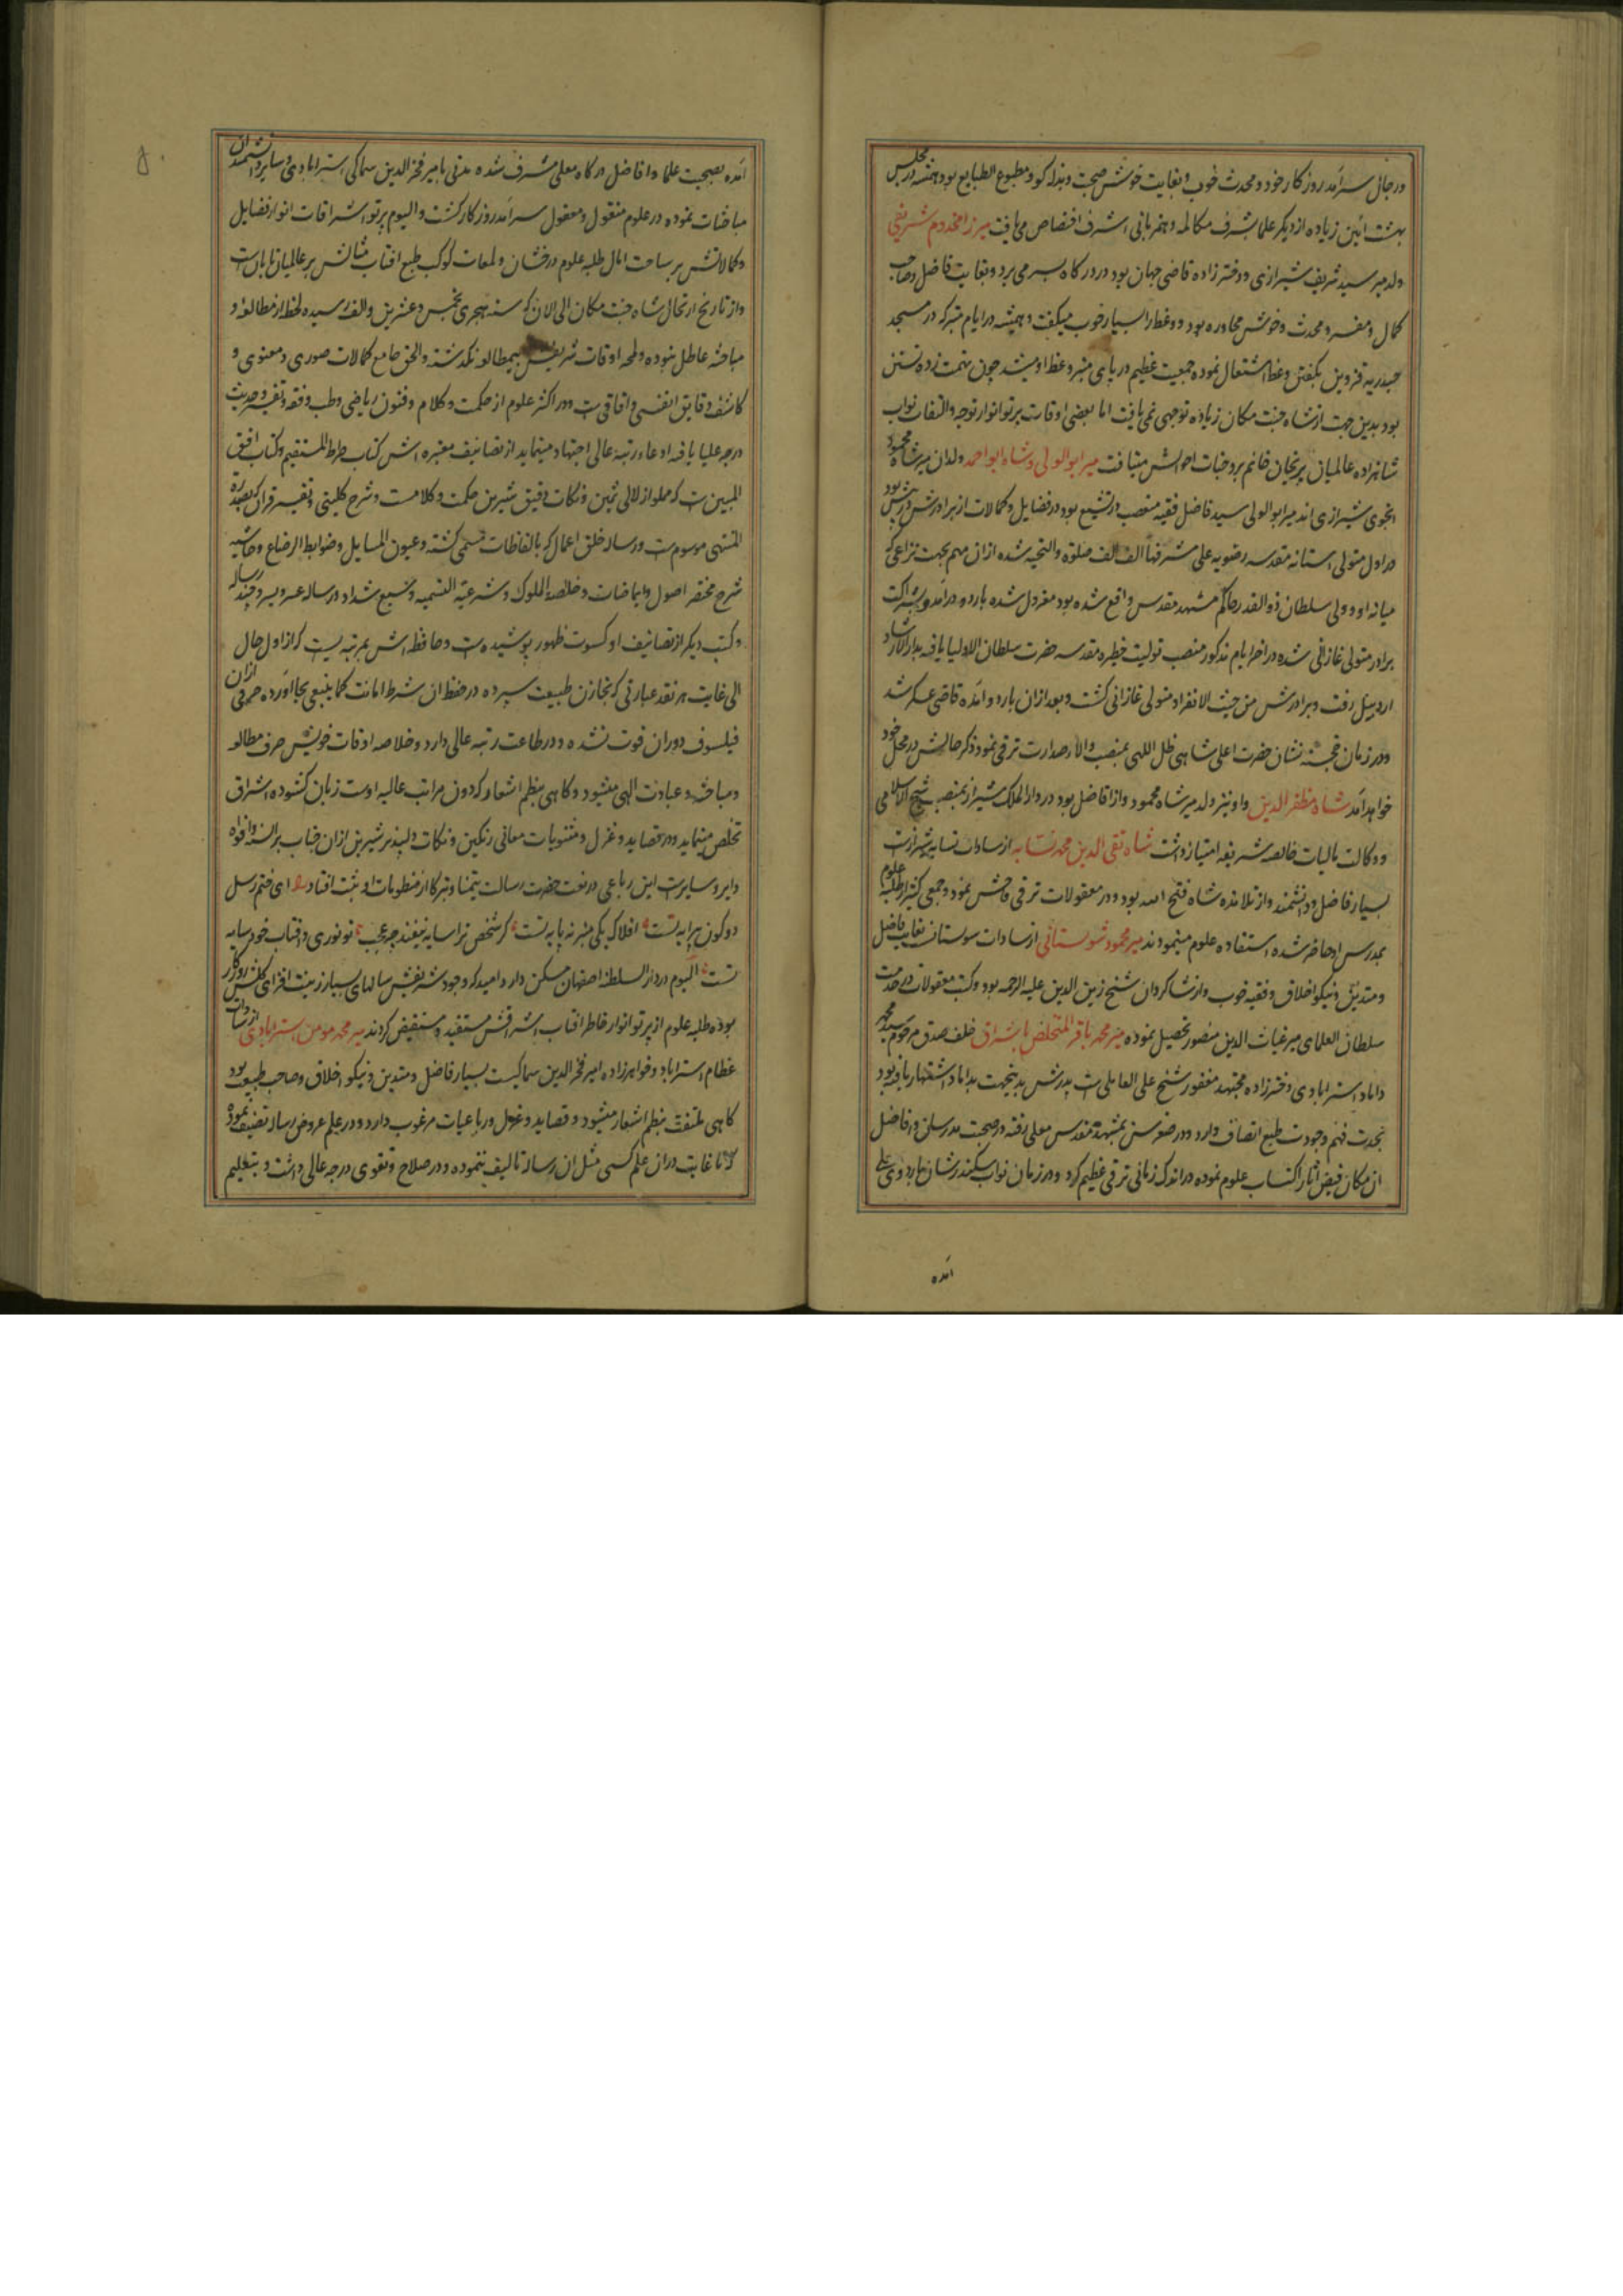 در حال سرآمد روزگار خود و محدث خوب و بغایت خوش صحبت و بذله کو و مطبوع الطبایع بود و همیشه در مجلس
بهشت آئین زیاده از دیگر علما بشرف مکالمه و همزبانی اشرف اختصاص می یافت میرزا مخدوم شریفی
ولد میر سید شریف شیرازی و دختر زاده قاضی جهان بود در درگاه بسر می برد و بغایت فاضل و صاحب
کمال و مفسر و محدث و خوش محاوره بود و وعظ را بسیار خوب میکفت و همیشه در ایام متبرکه در مسجد
حیدریه قزوین بکفتن وعظ اشتغال نموده جمعیت عظیم در پای منبر وعظ او میشد چون تهمت زده تسنن
بود بدین جهت از شاه جنت مکان زیاده توجهی نمی یافت اما بعضی اوقات پرتو انوار توجه و التفات نواب
شاهزاده عالمیان پریخان خانم بر وجنات احوالش میتافت میر ابو الولی و شاه ابو احمد ولدان میر شاه محمود
انجوی شیرازی اند میر ابو الولی سید فاضل فقیه متعصب در تشیع بود در فضایل و کمالات از برادرش در پیش بود
در اول متولی آستانه مقدسه رضویه علی مشرفها الف الف صلوة و التحیه شده از آن مهم بجهت نزاعی که
میانه او و ولی سلطان ذوالقدر حاکم مشهد مقدس واقع شده بود معزول شده باردو درآمد و بشراکت
برادر متولی غازانی شده در آخر ایام مذکور منصب تولیت حظیره مقدسه حضرت سلطان الاولیا یافته بدار الارشاد
اردبیل رفت و برادرش من حیث الانفراد متولی غازانی کشت و بعد از آن باردو آمده قاضی عسکر شد
و در زمان خجسته نشان حضرت اعلی شاهی ظل اللهی بمنصب والای صدارت ترقی نمود ذکر حالش در محل خود
خواهد آمد شاه مظفر الدین و او نیز ولد میر شاه محمود و از افاضل بود در دار الملک شیراز بمنصب شیخ الاسلامی
و وکالت مالیات خالصه شریفه امتیاز داشت شاه تقی الدین محمد نسابه از سادات نسابه شیرازست
بسیار فاضل و دانشمند و از تلامذه شاه فتح الله بود و در معقولات ترقی فاحش نمود و جمعی کثیر از طلبه علوم
بمدرس او حاضر شده استفاده علوم مینمودند میر محمود شولستانی از سادات شولستان بغایت فاضل
و متدین و نیکو اخلاق و فقیه خوب و از شاکردان شیخ زین الدین علیه الرحمه بود و کتب معقولات در خدمت
سلطان العلمای میر غیاث الدین منصور تحصیل نموده میر محمد باقر المتخلص باشراق خلف صدق مرحوم سید محمد
داماد استرابادی دختر زاده مجتهد مغفور شیخ علی العاملی است پدرش بدینجهت بداماد اشتهار یافته بود
بحدت فهم و جودت طبع اتصاف دارد و در صغر سن بمشهد مقدس معلی رفته در صحبت مدرسان و افاضل
آن مکان فیض آثار اکتساب علوم نموده در اندک زمانی ترقی عظیم کرد و در زمان نواب سکندر شان باردوی معلی
آمده
آمده بصحبت علما و افاضل درگاه معلی مشرف شده مدتی با میر فخر الدین سماکی استرابادی و سایر دانشمندان
مباحثات نموده در علوم منقول و معقول سرآمد روزکار کشت و الیوم پرتو اشراقات انوار فضایل
و کمالاتش بر ساحت آمال طلبه علوم درخشان و لمعات کوکب طبع افتاب مثالش بر عالمیان تابان است
و از تاریخ ارتحال شاه جنت مکان الی الان که سنه هجری بخمس و عشرین و الف رسیده لحظه از مطالعه و
مباحثه عاطل نبوده و لمحه اوقات شریفش بیمطالعه نکذشته و الحق جامع کمالات صوری و معنوی و
کاشف دقایق انفسی و آفاقی است و در اکثر علوم از حکمت و کلام و فنون ریاضی و طب و فقه و تفسیر و حدیث
درجه علیا یافته ادعای رتبه عالی اجتهاد مینماید از تصانیف معتبره اش کتاب صراط المستقیم و کتاب افق
المبین است که مملو از لالی ثمین و نکات دقیق شیرین حکمت و کلامست و شرح کلینی و تفسیر قرآن که بسدره
المنتهی موسوم است و رساله خلق اعمال که بالفاظات مسمی کشته و عیون المسایل و ضوابط الرضاع و حاشیه
شرح مختصر اصول و ایماضات و خلصة الملوک و شرعیة التسمیه و سبع شداد و رساله عسر و یسر و چند رساله
و کتب دیکر از تصانیف او کسوت ظهور پوشیده است و حافظه اش بمرتبه ایست که از اول حال
الی غایت هر نقد عبارتی که بخازن طبیعت سپرده در حفظ آن شرط امانت کما ینبغی بجا آورده حرفی از آن
فیلسوف دوران فوت نشده و در طاعت رتبه عالی دارد و خلاصه اوقات خویش صرف مطالعه
و مباحثه و عبادت الهی میشود و کاهی بنظم اشعار که دون مراتب عالیه اوست زبان کشوده اشراق
تخلص مینماید و در قصاید و غزل و مثنویات معانی رنکین و نکات دلپذیر شیرین از آن جناب بر السنه و افواه
دایر و سایرست این رباعی در نعت حضرت رسالت تیمنا و تبرکا از منظومات او ثبت افتاد ای ختم رسل
دو کون پیرایه تست افلاک یکی منبر نه پایه تست کر شخص ترا سایه نیفتد چه عجب تو نوری و آفتاب خود سایه
تست الیوم در دار السلطنه اصفهان مسکن دارد امید که وجود شریفش سالهای بسیار زینت افزای کلشن روزکار
بوده طلبه علوم از پرتو انوار خاطر افتاب اشراقش مستفید و مستفیض کردند میر محمد مومن استرابادی از سادات
عظام استراباد و خواهر زاده امیر فخر الدین سماکیست بسیار فاضل و متدین و نیکو اخلاق و صاحب طبیعت بود
کاهی ملتفت بنظم اشعار میشود و قصاید و غزل و رباعیات مرغوب دارد و در علم عروض رساله تصنیف نموده
که تا غایت در آن علم کسی مثل آن رساله تالیف ننموده و در صلاح و تقوی درجه عالی داشت و بتعلیم